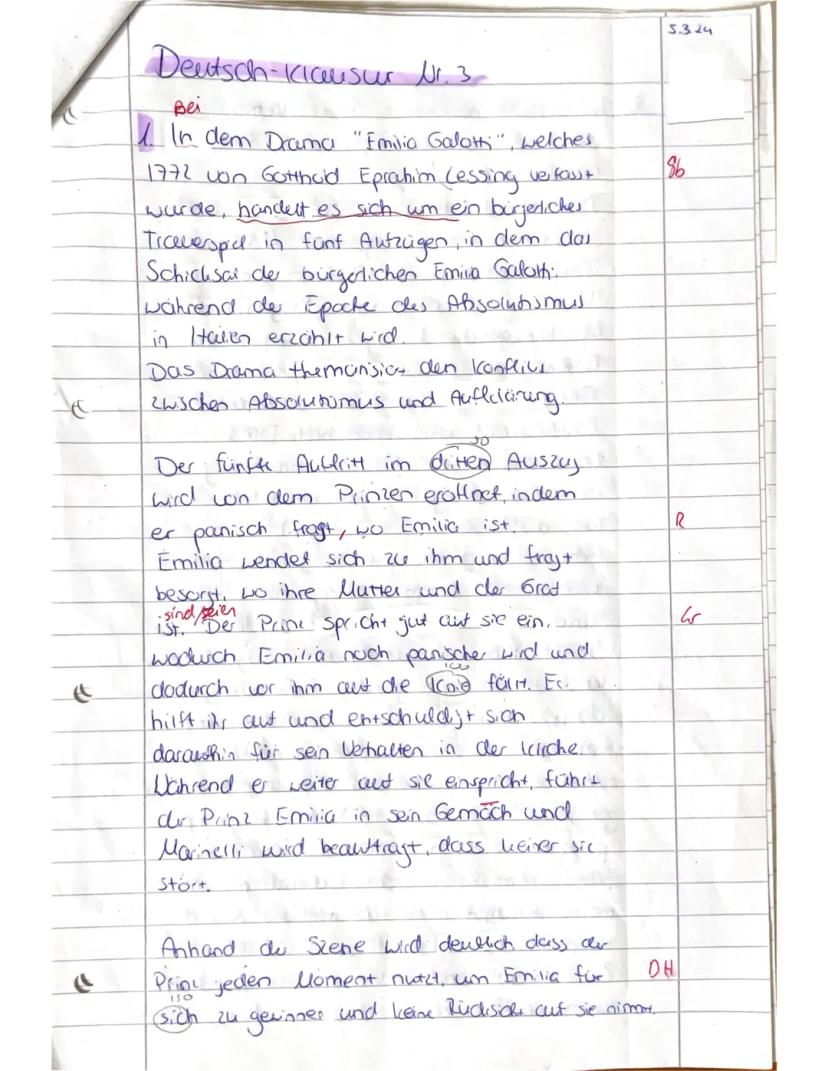 5.3.24
Deutsch-Klausur Nr. 3
Bei
1. In dem Drama "Emilia Galotti", welches
1772 von Gotthold Eprahim Lessing verfasst
Sb
wurde, handelt es sich um ein bürgerliches
Trauerspiel in fünf Aufzügen, in dem das
Schicksal der bürgerlichen Emilia Galotti
während der Epoche des Absolutismus
in Italien erzählt wird.
Das Drama thematisiert den Konflikt
zwischen Absolutismus und Aufklärung.
50
Der fünfte Auftritt im dritten Auszug
wird von dem Prinzen eröffnet, indem
er panisch fragt, wo Emilia ist.
R
Emilia wendet sich zu ihm und fragt
besorgt, wo ihre Mutter und der Graf
sind/seien
ist. Der Prinz spricht gut auf sie ein,
Gr
wodurch Emilia noch panischer wird und
100
dadurch vor ihm auf die Knie fällt. Er
hilft ihr auf und entschuldigt sich
daraufhin für sein Verhalten in der Kirche.
Während er weiter auf sie einspricht, führt
der Prinz Emilia in sein Gemach und
Marinelli wird beauftragt, dass keiner sie
stört.
Anhand der Szene wird deutlich dass der
Prinz jeden Moment nutzt, um Emilia für
DH
150
sich zu gewinnen und keine Rücksicht auf sie nimmt.